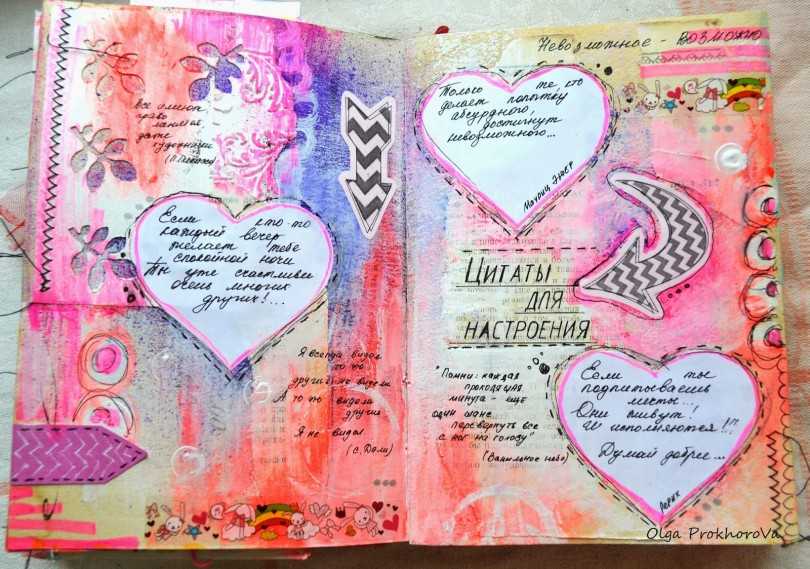 Все имеют
право
даже
художники
Если кто-то
каждый вечер
желает тебе
спокойной ночи
Ты уже счастливее
очень многих
других!...
Я всегда видел
то что
другие не видели
А то что видели
другие
Я не видел
(С. Дали)
Невозможное - возможно
Только те кто
делает попытку
абсурдного,
достигнут
невозможного...
Мориц Эшер
ЦИТАТЫ
ДЛЯ
НАСТРОЕНИЯ
"Помни: каждая
проходящая
минута - ещё
один шанс
перевернуть всё
с ног на голову"
(Ванильное небо)
Если ты
подпитываешь
мечты...
Они живут!
И исполняются!!!
Думай добрее...
Рерих
Olga ProkhoroVa